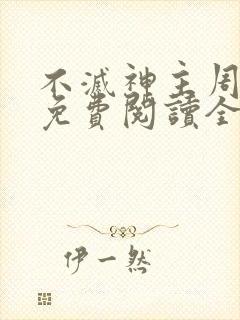 不滅神主周
免費閱讀全
伊一然